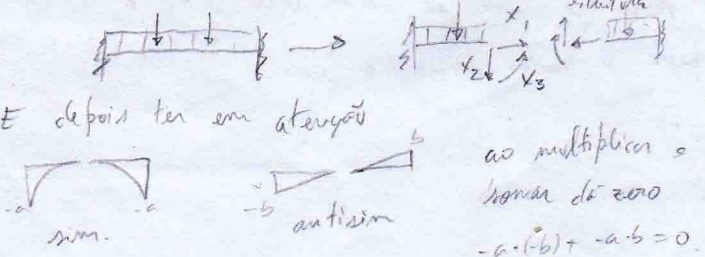 estrutura
X1
X2 X3
E depois ter em atenção
-a -a
sim.
-b b
antisim
ao multiplicar e
somar dá zero
-a·(-b) + -a·b = 0.